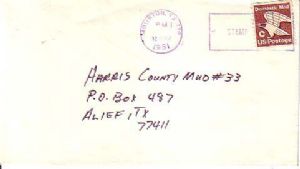 HOUSTON, TX
PM
1981
Domestic Mail
C
US Postage
HARRIS COUNTY MUD #33
P.O. BOX 487
ALIEF, TX
77411